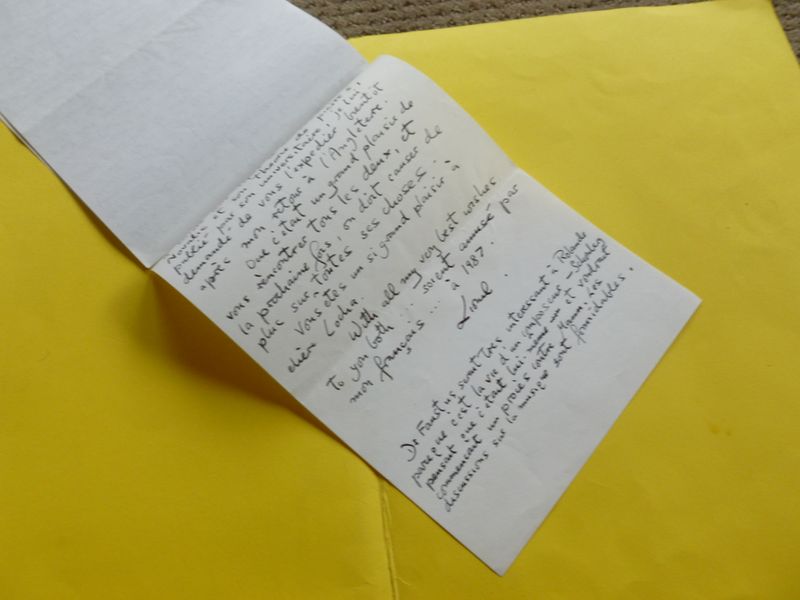 Novalis et son thème de
publié par son universitaire! je lui
demandé de vous l'expédier bientôt
après mon retour à l'Angleterre.
Que c'était un grand plaisir de
vous rencontrer tous les deux, et
la prochaine fois, on doit causer de
plus sur toutes ses choses.
Vous êtes un si grand plaisir à
chère Locha.
With all my very best wishes
to you both ... soient amusé par
mon français ... à 1987.
Dr Faustus serait très intéressant à Rolande
parce que c'est la vie d'un composeur - Schönberg
pensait que c'était lui-même un et voudrait
commencait un procès contre Mann. Les
discussions sur la musique sont formidables.